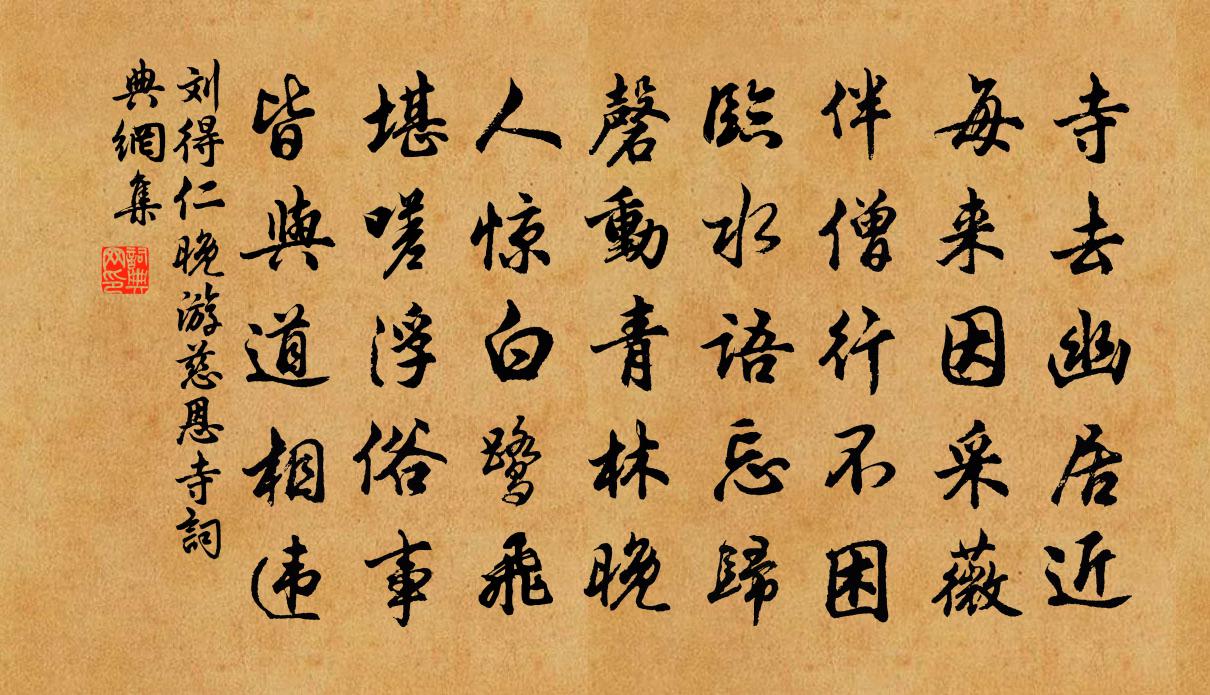 寺去幽居近
每来因采薇
伴僧行不困
臨水语忘歸
磬動青林晚
人惊白鹭飛
堪嗟浮俗事
皆與道相违
刘得仁晚游慈恩寺詞
典網集
詞典
网印